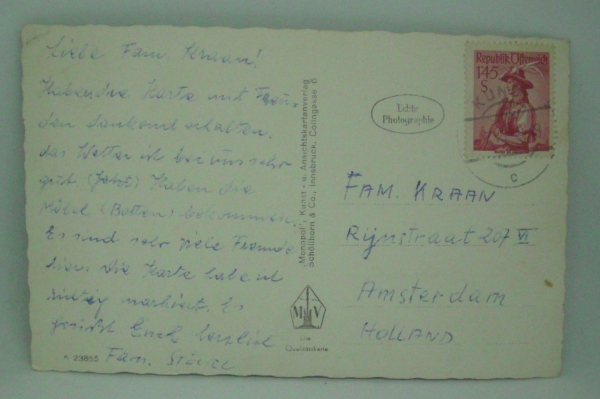 Liebe Fam. Kraan!
Haben die Karte mit Freu
den dankend erhalten.
das Wetter ist bei uns sehr
gut (jetzt) Haben die
Möbel (Betten) bekommen.
Es sind sehr viele Fremde
hier. die Karte habe ich
richtig
Es
grüßt Euch herzlich
Fam.
K 23855
"Monopol", Kunst- u. Ansichtskartenverlag
Schöllhorn & Co., Innsbruck, Colingasse
Echte
Photographie
M V
Die
Qualitätskarte
Republik Österreich
1·45
S
C
FAM. KRAAN
Rijnstraat 207 VI
Amsterdam
HOLLAND